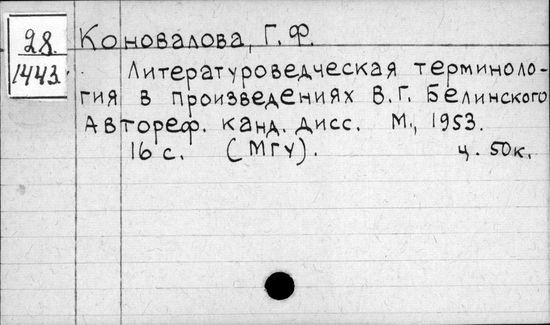 28.
1443.
Коновалова, Г. Ф.
Литературоведческая терминоло-
гия в произведениях В.Г. Белинского
Автореф. канд. дисс. М., 1953.
16 с. (МГУ). ц. 50к.